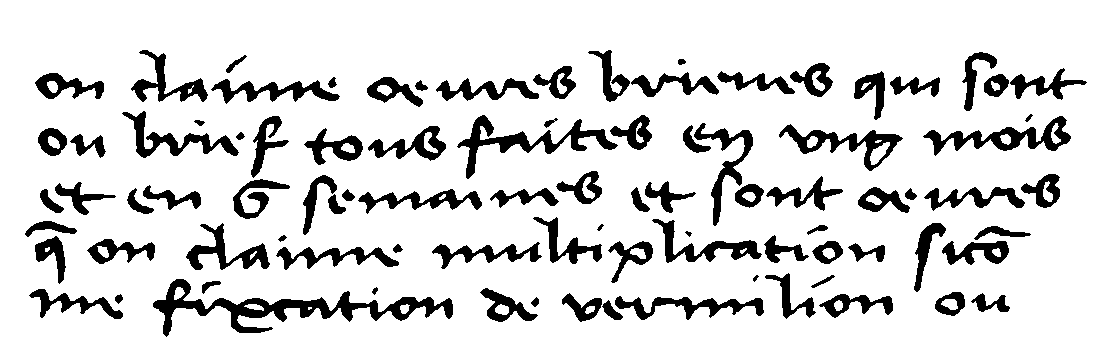 on claime oeures brieues qui sont
ou brief tous faites en vng mois
et en 6 semaines et sont oeures
q̄ on claime multiplication sicō
me fixcation de vermilion ou